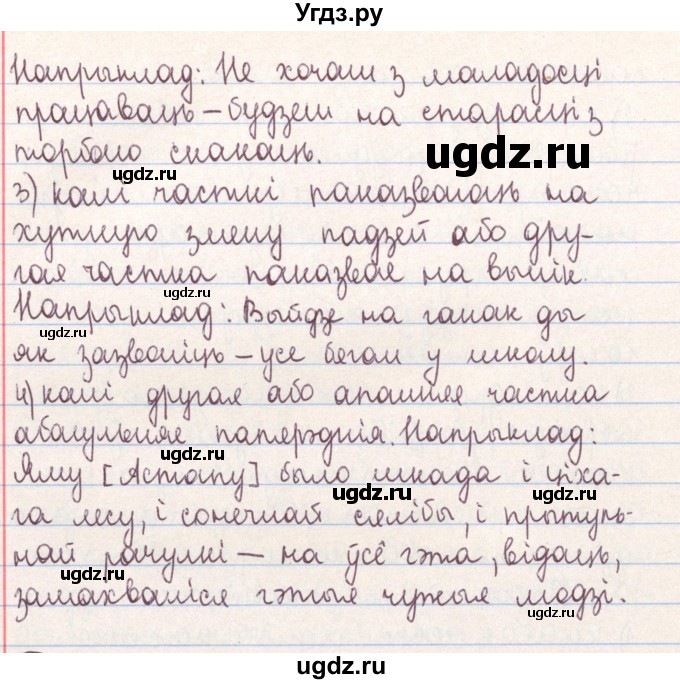 Угдз.ру
Напрыклад: Не хочаш з маладосці
працаваць – будзеш на старасці з
торбаю скакаць.
3) калі часткі паказваюць на
хуткую змену падзей або дру-
гая частка паказвае на вынік.
Напрыклад: Выйдзе на ганак ды
як зазвоніць – усе бегам у школу.
4) калі другая або апошняя частка
абагульняе папярэднія. Напрыклад:
Яму [Астапу] было шкада і ціха-
га лесу, і сонечнай сялібы, і прытуль-
най рачулкі – на ўсё гэта, відаць,
замахваліся гэтыя чужыя людзі.
ugdz.ru
ugdz.ru
ugdz.ru
ugdz.ru
ugdz.ru
ugdz.ru
ugdz.ru
ugdz.ru
ugdz.ru
ugdz.ru
ugdz.ru
ugdz.ru